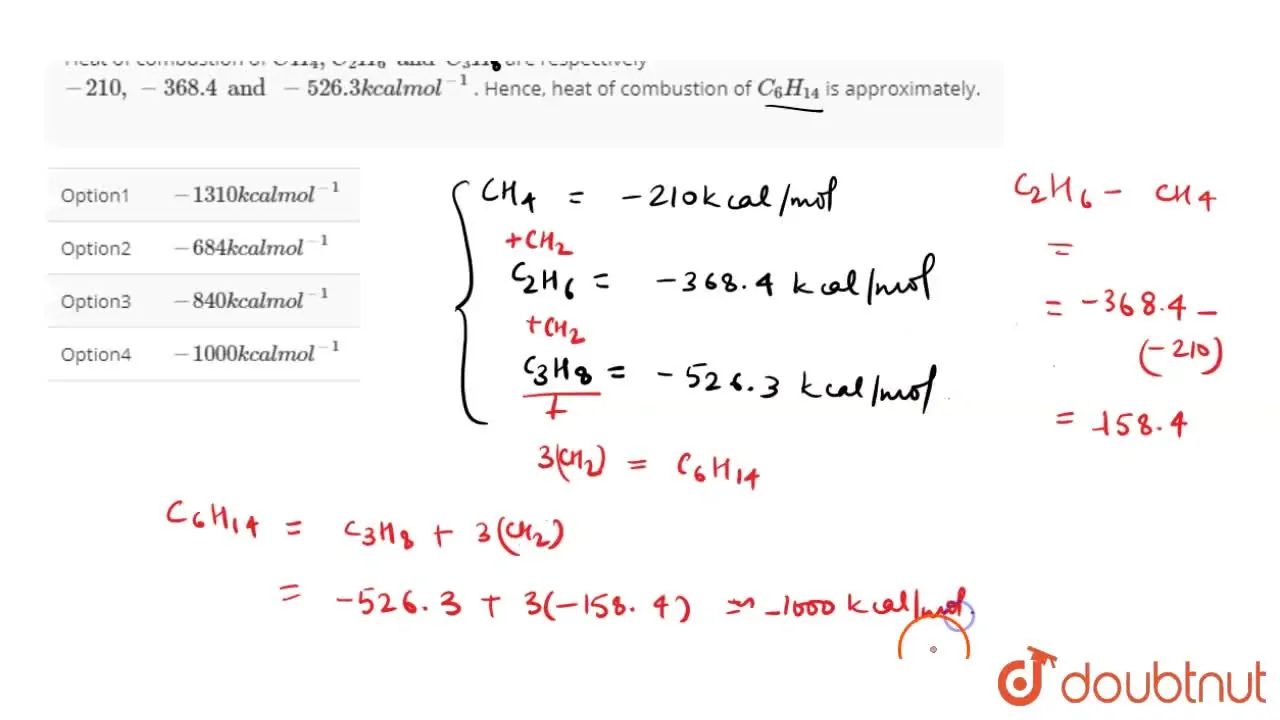 Heat of combustion of CH₄, C₂H₆ and C₃H₈ are respectively
−210, −368.4 and −526.3kcalmol⁻¹. Hence, heat of combustion of C₆H₁₄ is approximately.
Option1 −1310kcalmol⁻¹
Option2 −684kcalmol⁻¹
Option3 −840kcalmol⁻¹
Option4 −1000kcalmol⁻¹
CH₄ = −210kcal/mol
+CH₂
C₂H₆ = −368.4 kcal/mol
+CH₂
C₃H₈ = −526.3 kcal/mol
+
3(CH₂) = C₆H₁₄
C₂H₆ − CH₄
=
= −368.4 −
(−210)
= −158.4
C₆H₁₄ = C₃H₈ + 3(CH₂)
= −526.3 + 3(−158.4) ≈ −1000 kcal/mol.
doubtnut